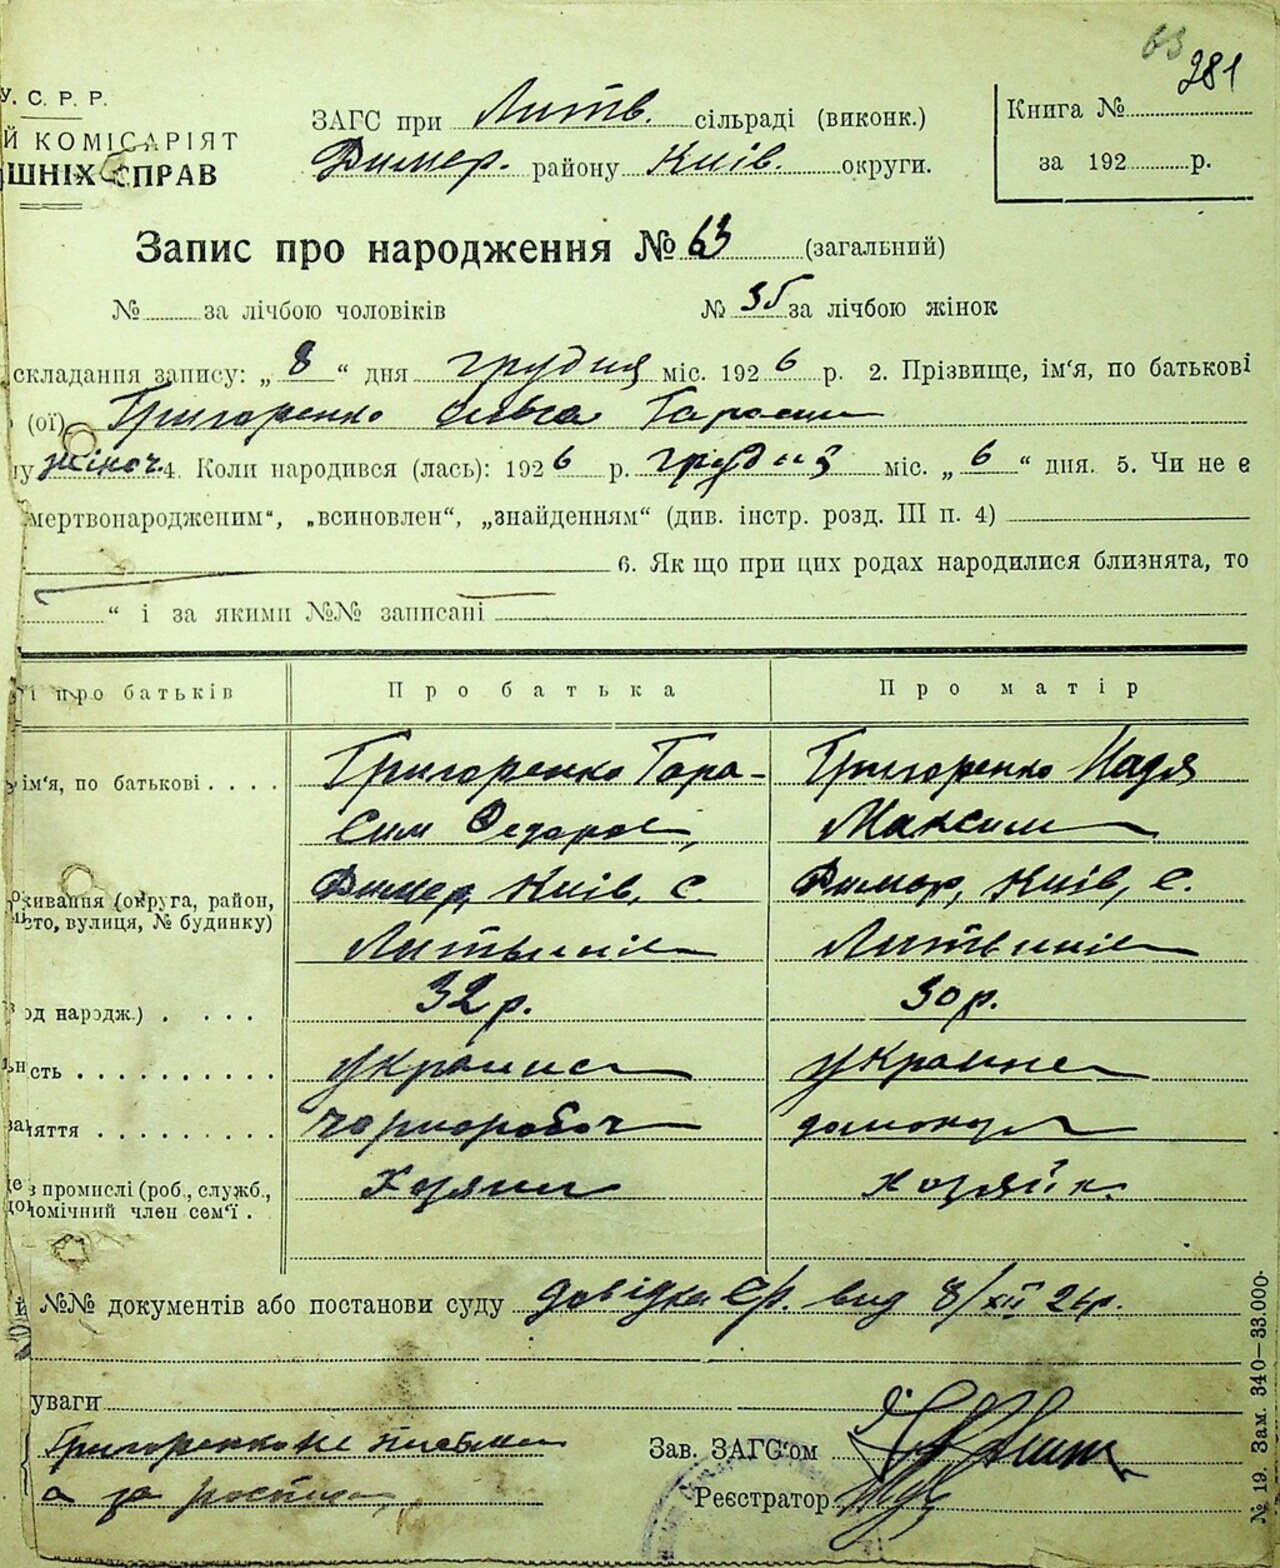 63
281
У. С. Р. Р.
Й КОМІСАРІЯТ
ШНІХ СПРАВ
ЗАГС при Литв. сільраді (виконк.)
Димер. району Київ. округи.
Книга №
за 192 р.
Запис про народження № 63 (загальний)
№ за лічбою чоловіків
№ 35 за лічбою жінок
складання запису: „ 8 “ дня грудня міс. 192 6 р. 2. Прізвище, ім‘я, по батькові
(ої) Григоренко Ольга Гарасим
жіноч. 4. Коли народився (лась): 192 6 р. грудня міс. „ 6 “ дня. 5. Чи не є
мертвонародженим“, „всиновлен“, „знайденням“ (див. інстр. розд. III п. 4)
6. Як що при цих родах народилися близнята, то
“ і за якими №№ записані
і про батьків
Про батька
Про матір
ім‘я, по батькові
Григоренко Гара-
сим Федоров
Григоренко Надя
Максим
живання (округа, район,
сто, вулиця, № будинку)
Димер, Київ, с.
Литвинів
Димер, Київ, с.
Литвинів
од народж.)
32 р.
30 р.
ість
україн
україн
яття
чорнороб
домогосп
з промислі (роб., служб.,
номічний член сем‘ї .
Хозяин
хозяйк.
і №№ документів або постанови суду довідка с/р. вид 8/XII 24р.
уваги
Григоренко не письмен
а за
Зав. ЗАГС‘ом
Реєстратор
№ 19. Зам. 340—33.000.